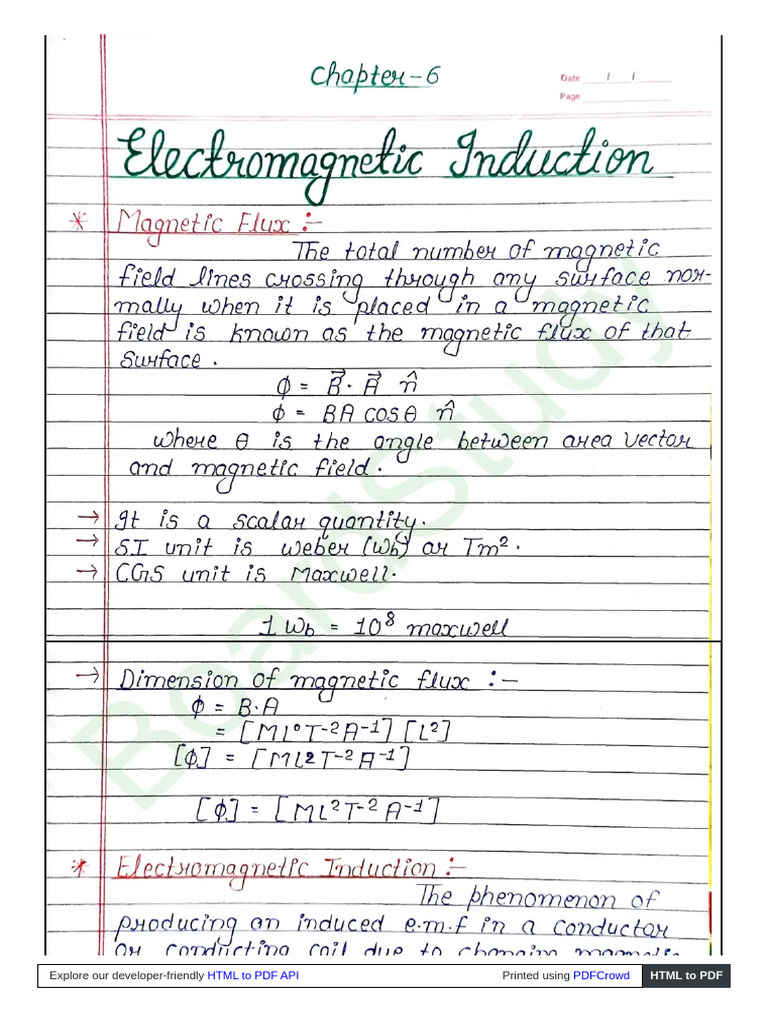 Chapter-6
Date / /
Page
Electromagnetic Induction
* Magnetic Flux :-
The total number of magnetic
field lines crossing through any surface nor-
mally when it is placed in a magnetic
field is known as the magnetic flux of that
surface.
ϕ = B⃗ · A⃗ n̂
ϕ = BA cosθ n̂
where θ is the angle between area vector
and magnetic field.
→ It is a scalar quantity.
→ SI unit is weber (Wb) or Tm².
→ CGS unit is Maxwell.
1 Wb = 10⁸ maxwell
→ Dimension of magnetic flux :-
ϕ = B·A
= [ML⁰T⁻²A⁻¹] [L²]
[ϕ] = [ML2T⁻²A⁻¹]
[ϕ] = [ML²T⁻²A⁻¹]
* Electromagnetic Induction :-
The phenomenon of
producing an induced e.m.f in a conductor
or conducting coil due to changing magnetic
BoardStudy
Explore our developer-friendly HTML to PDF API
Printed using PDFCrowd HTML to PDF